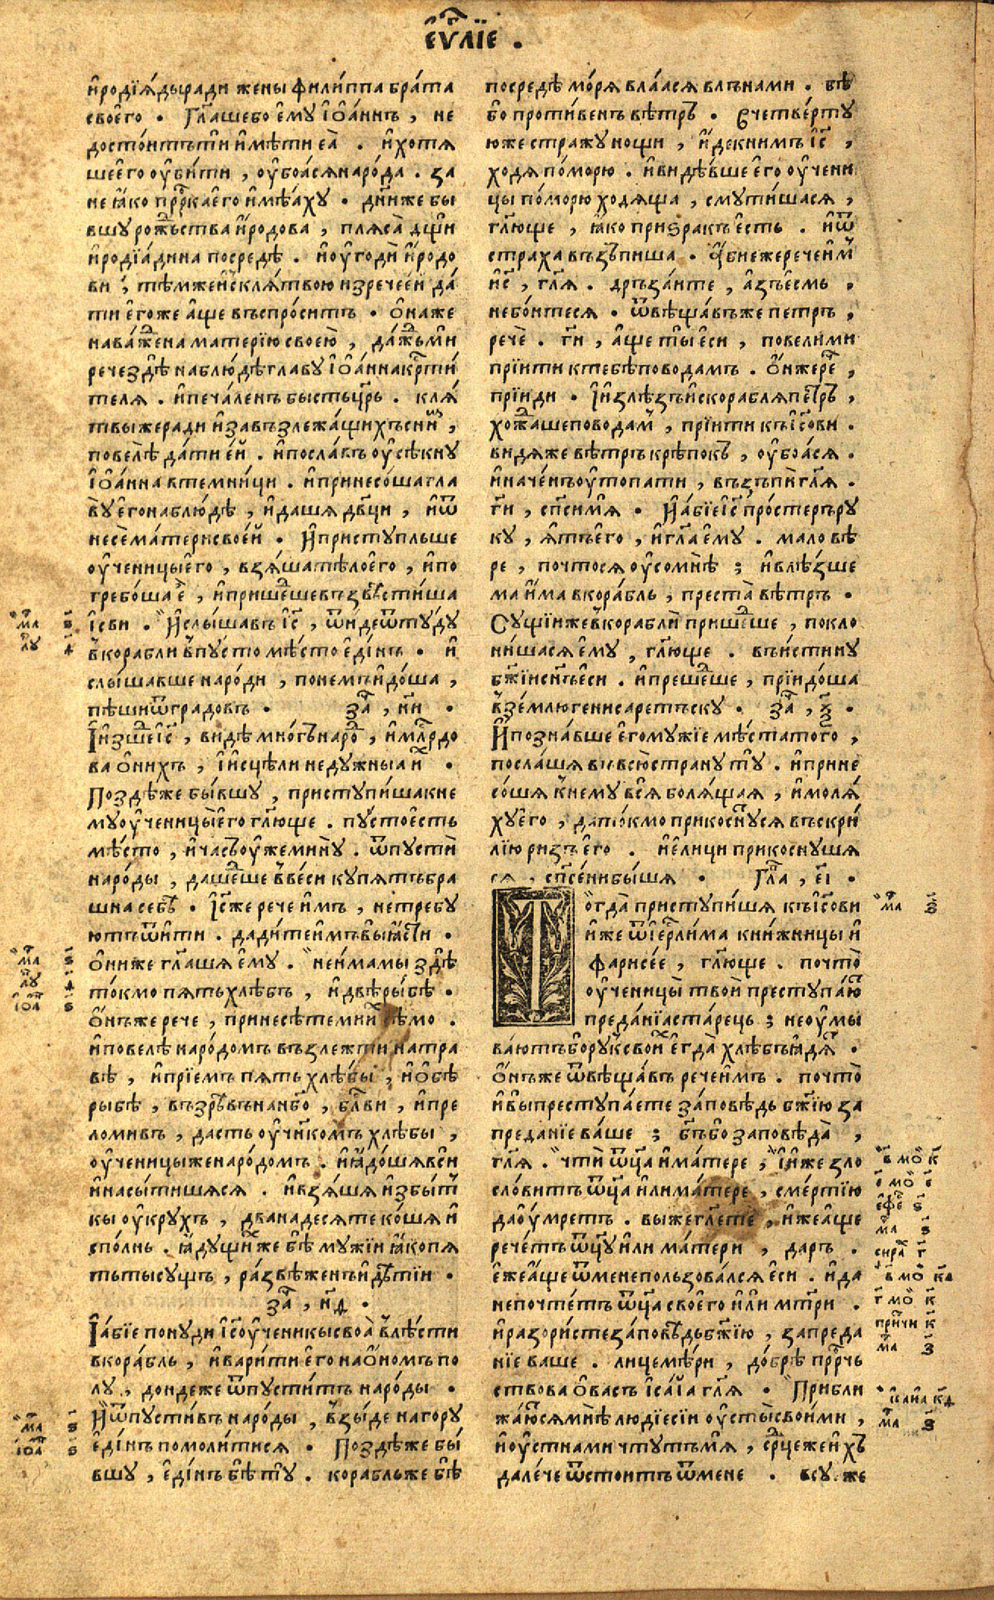 єѵ҃лїе .
и҆родїѧ́ды ради жены филиппа бра́та
своего . Гл҃аше бо є҆му і҆ѡ҆а́ннъ , не
досто́итъ ти и҆мѣ́ти еа̀ . и҆ хотѧ
ше е҆го оу҆би́ти , оу҆боа́сѧ наро́да . за
не ꙗ҆́ко прⷪ҇рка е҆го и҆мѣ́ахꙋ . дн҃и же бы
вшу рожⷣьства и҆родова , плѧса̀ дщи
и҆родїа́дина посредѣ̀ . и҆ оу҆годѝ и҆родо
ви , тѣ́мже и҆ склѧ́твою изрече е҆́й да́
ти е҆гоже а҆ще въспро́ситъ . ѻ҆на же
нава́жⷣена матерїю своею , да́жⷣь мѝ
рече здѣ̀ на блю́дѣ главу і҆ѡ҆а́нна крⷭ҇ти́
телѧ . и҆ печа́ленъ бысть цр҃ь . клѧ́
твы же ради и҆ за възлежа́щихъ сни́мⷨ ,
повелѣ̀ да́ти е҆́й . и҆ посла́въ оу҆сѣ́кну
і҆ѡ҆а́нна в темни́ци . и҆ принесо́ша гла
ву е҆го на блю́дѣ , и҆ да́шѧ дв҃ци , и҆ ѿ
несѐ ма́тери свое́й . И҆ приступльше
оу҆ченицы е҆го , взѧ́ша тѣ́ло е҆го , и҆ по
гребо́ша ѐ , и҆ пришеⷣше възвѣ́стиша
і҆с҃ви . И҆ слы́шавъ і҆с҃ , ѿиде ѿту́ду
в кора́бли в пу́сто мѣ́сто е҆ди́нъ . и҆
слы́шавше наро́ди , по не́мъ и҆до́ша ,
пѣ́ши ѿ градовъ . за҃ , нн҃ .
І҆ и҆зшеⷣ і҆с҃ , ви́дѣ мно́гъ наро́дⷣ , и҆ млⷭ҇рдо
ва ѻ҆ ни́хъ , і҆ и҆сцѣли неду́жныа и҆́хⷯ .
Поздѣ́ же бы́вшу , приступи́ша к не
му оу҆ченицы̀ е҆го гл҃юще . пу́сто е҆сть
мѣ́сто , и҆ ча́съ оу҆же мину̀ . ѿпустѝ
наро́ды , да шеⷣше в ве́си ку́пѧтъ бра
шна себѣ̀ . і҆с҃ же рече и҆́мъ , не требу
ютъ ѿи́ти . дади́те и҆мъ вы ꙗ҆́сти .
ѻ҆ни же гл҃ашѧ є҆му . не и҆мамы здѣ̀
то́кмо пѧ́ть хлѣ́бъ , и҆ двѣ̀ ры́бѣ .
ѻ҆нъ же рече , принесѣ́те мнѝ сѣ́мо .
и҆ повелѣ̀ наро́домъ възлещѝ на тра
вѣ̀ , и҆ прїе́мъ пѧ́ть хлѣ́бы , и҆ ѻ҆́бѣ
рыбѣ , възрѣ́въ на нб҃о , бл҃гви , и҆ пре
ломивъ , дасть оу҆ченико́мъ хлѣ́бы ,
оу҆ченицы же наро́домъ . и҆ ꙗ҆до́шѧ вси
и҆ насы́тишасѧ . и҆ взѧ́шѧ и҆збы́тⷮ
кы оу҆кру́хъ , два на десѧте ко́шѧ и҆
спо́лнь . ꙗ҆ду́щихⷯ же бѣ̀ мужїй ꙗ҆́ко пѧ
ть ты́сущъ , ра́звѣ же́нъ и҆ дѣ́тїи .
за҃ , нѳ҃ .
І҆ а҆́бїе пону́ди і҆с҃ оу҆ченикы своа̀ влѣ́сти
в кора́бль , и҆ вари́ти е҆го на ѻ҆́номъ по
лу̀ , дондеже ѿпусти́тъ наро́ды .
И҆ ѿпусти́въ наро́ды , взы́де на гору
е҆ди́нъ помоли́тисѧ . Поздѣ́ же бы́
вшу , е҆ди́нъ бѣ̀ ту̀ . кора́бль же бѣ̀
посредѣ̀ мо́рѧ вла́ѧсѧ влънами . бѣ̀
бо проти́венъ вѣ́тръ . в четве́рту
ю же стра́жу нощи , и҆́де к ни́мъ і҆с҃ ,
ходѧ по мо́рю . и҆ ви́дѣвше е҆го оу҆чени
цы по мо́рю ходѧща , смути́шасѧ ,
гл҃юще , ꙗ҆́ко при́зракъ е҆́сть . и҆ ѿ
стра́ха възъпи́ша . а҆́бие же рече и҆́мⷨ
і҆с҃ , гл҃ѧ . дръза́ите , а҆́зъ е҆́смь .
не бо́итесѧ . ѿвѣща́въ же петръ ,
речѐ . гн҃ , а҆ще ты̀ е҆си , повелѝ ми
прїи́ти к тебѣ̀ по вода́мъ . ѻ҆н же речⷱ҇ ,
прїиди . І҆ и҆злѣ́зъ и҆с кораблѧ пе́тръ ,
хожⷣаше по вода́мⷨ , прїи́ти къ і҆с҃ови .
ви́дѧ же вѣ́тръ крѣ́покъ , оу҆боа́сѧ .
и҆ наче́нъ оу҆топати , възъпѝ гл҃ѧ .
гн҃ , сп҃си мѧ . И҆ а҆́бїе і҆с҃ про́стеръ ру
ку , ѧ́тъ е҆го , и҆ гл҃а є҆му . ма́ло вѣ
ре , почто́ сѧ оу҆сомнѣ̀ ; и҆ влѣ́зше
ма и҆́ма в кора́бль , преста̀ вѣ́тръ .
Су́щїи же в кораблѝ прише́дⷣше , покло
ни́шасѧ є҆му , гл҃юще . въи́стину
бж҃їи сн҃ъ е҆си . и҆ преше́дⷣше , прїидо́ша
в землю гениса́ретъску . за҃ , ѯ҃ .
И҆ позна́вше е҆го мужїе мѣ́ста того̀ ,
посла́шѧ въ всю̀ страну ту̀ . и҆ прине
со́шѧ к не́му всѧ̀ болѧ́щаѧ , и҆ молѧ́
ху е҆го , да то́кмо прикосну́сѧ въскри́
лїю ри́зъ е҆го . и҆ е҆ли́ци прикосну́шѧ
сѧ , сп҃се́ни бы́шѧ . Гл҃а , є҃і .
Тогда̀ приступи́шѧ къ і҆с҃ови
и҆́же ѿ і҆е҆рⷭ҇ли́ма кни́жницы и҆
фарисе́е , гл҃юще . почто̀
оу҆ченицы̀ твоѝ преступа́ю
преда́нїа ста́рець ; не оу҆мы
ва́ютъ бо ру́къ свои́хⷯ е҆гда̀ хлѣ́бъ ꙗ҆дѧⷮ .
ѻ҆́нъ же ѿвѣща́въ рече и҆́мъ . почто̀
и҆ вы̀ преступа́ете за́повѣдь бж҃їю за
преда́нїе ва́ше ; бг҃ъ бо запове́да ,
гл҃ѧ . чтѝ ѿц҃а и҆ ма́тере , и҆ и҆́же зло
сло́витъ ѿц҃а и҆лѝ ма́тере , сме́ртїю
да оу҆мретъ . вы́ же гл҃ете , и҆́же а҆ще
рече́тъ ѿц҃у и҆лѝ ма́тери , да́ръ .
е҆́же а҆ще ѿ мене по́льзова́лсѧ е҆си . и҆ да
не почте́тъ ѿц҃а свое́го и҆лѝ мт҃ри .
и҆ разори́сте за́повѣдь бж҃їю , за преда
нїе ва́ше . лицемѣ́ри , до́брѣ прⷪ҇рчь
ствова ѻ҆ ва́съ і҆са́їа гл҃ѧ . Прибли
жа́юсѧ мнѣ̀ людїе сїи оу҆сты̀ свои́ми ,
и҆ оу҆стнами чту́тъ мѧ̀ , срⷣце же и҆́хъ
дале́че ѿсто́итъ ѿ мене . всу́ же